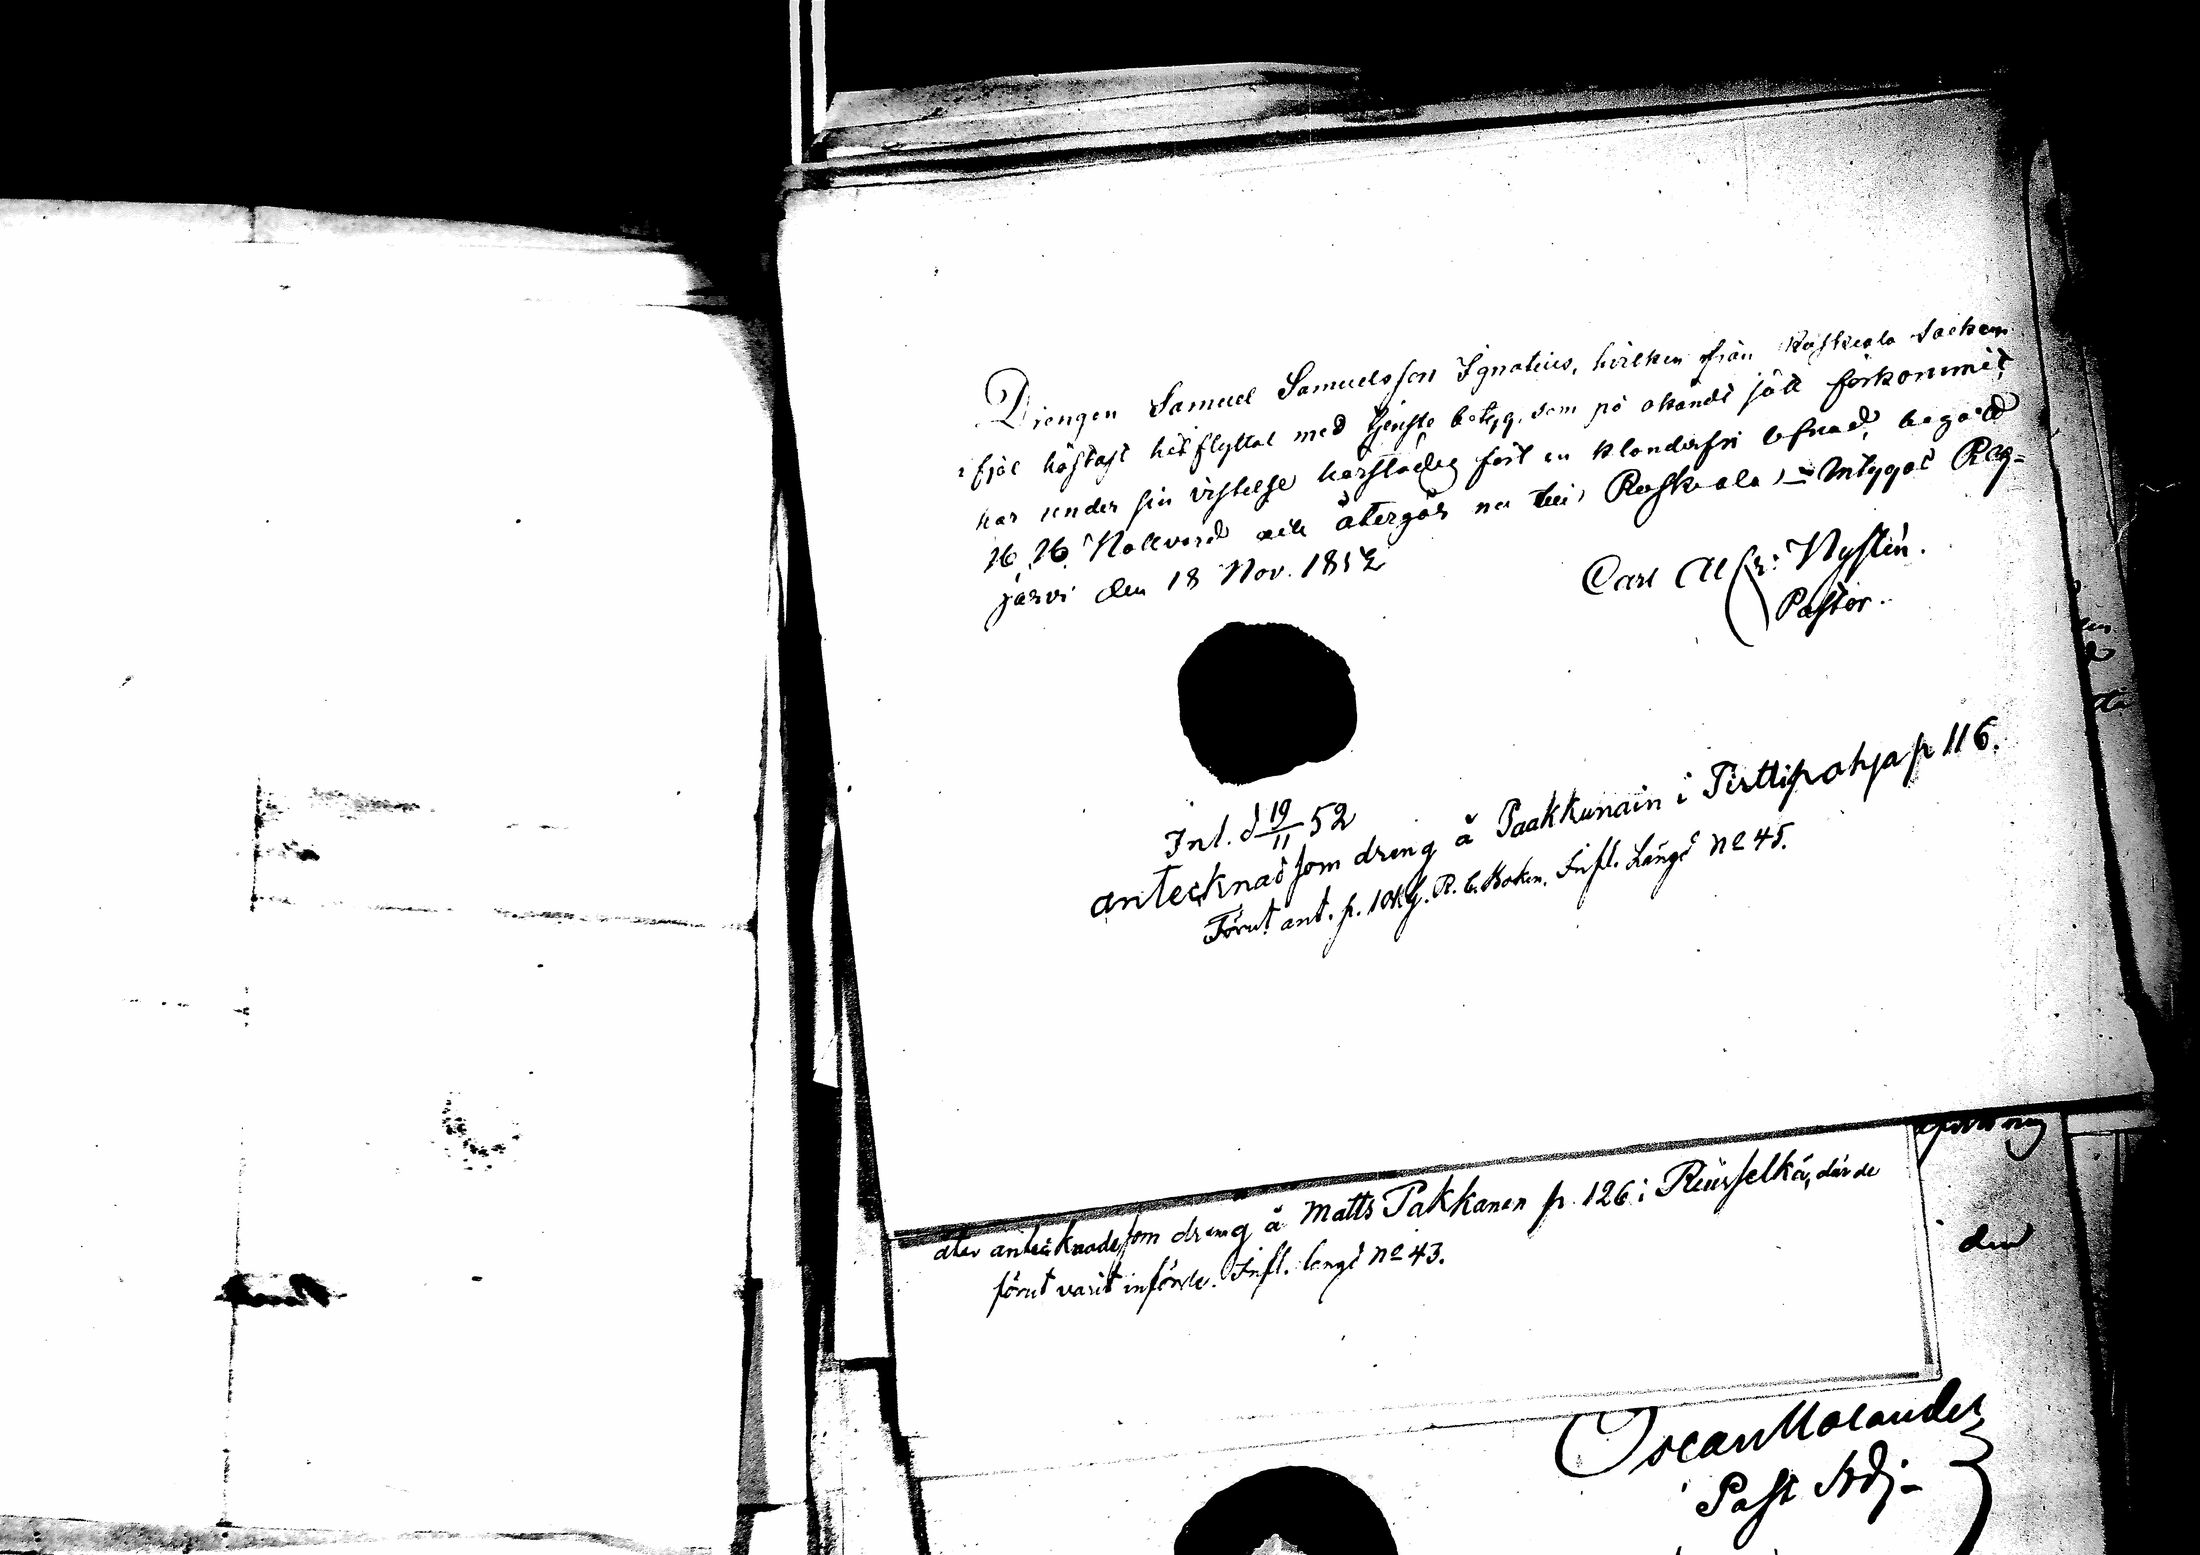 Drengen Samuel Samuelsson Ignatius, hvilken från Ruskeala Socken
ifjol höstast hitflyttat med tjenste betyg, som på okändt sätt förkommit,
har under sin vistelse härstädes fört en klanderfri lefnad, begått
H. H. Nattvard och återgår nu till Ruskeala, intygat Räg-
järvi den 18 Nov. 1852
Carl Alfr: Nystén.
Pastor.
Inl. d 19/11 52
antecknad som dreng å Paakkunain i Pirttipohja p 116.
Förut ant. p. 104 g. R. C. Boken. Infl. Längd No 45.
åter antecknade som dreng å Matts Pakkanen p. 126 i , där de
förut varit införde. Infl. längd No 43.
den
Oscar Molander
Past Adj-